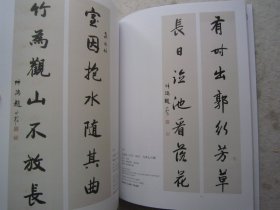 有時出郭行芳草
長日臨池看落花
室因抱水隨其曲
竹為觀山不放長